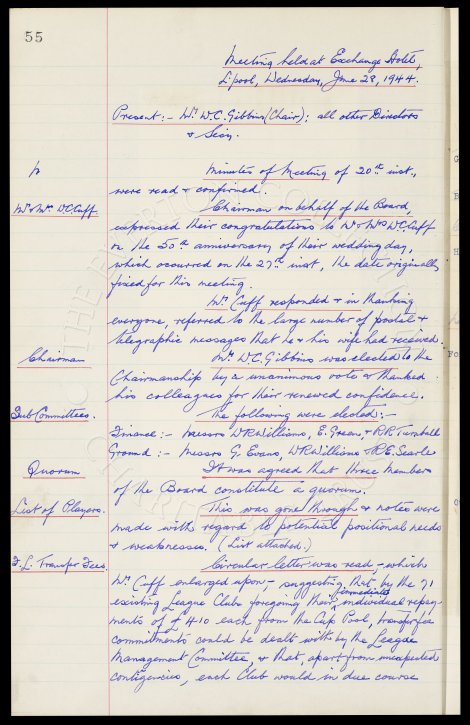 55
Meeting held at Exchange Hotel,
L'pool, Wednesday, June 28, 1944.
Present:- Mr. W.C. Gibbins (Chair); all other Directors
& Secy.
Minutes of Meeting of 20th inst.,
were read & confirmed.
Mr & Mrs. W.C. Cuff
Chairman on behalf of the Board,
expressed their congratulations to Mr & Mrs W.C. Cuff
on the 50th anniversary of their wedding day,
which occurred on the 27th inst, the date originally
fixed for this meeting.
Mr Cuff responded & in thanking
everyone, referred to the large number of postal &
telegraphic messages that he & his wife had received.
Chairman
Mr. W.C. Gibbins was elected to the
Chairmanship by a unanimous vote & thanked
his colleagues for their renewed confidence.
Sub Committees.
The following were elected:-
Finance:- Messrs W.R. Williams, E. Green, & R.R. Turnbull
Ground:- Messrs G. Evans, W.R. Williams & R.E. Searle
Quorum
It was agreed that three members
of the Board constitute a quorum.
List of Players.
This was gone through & notes were
made with regard to potential positional needs
& weaknesses. (List attached.)
F.L. Transfer Fees.
Circular letter was read, - which
Mr Cuff enlarged upon - suggesting that by the 71
existing League Clubs foregoing their immediate individual repay-
ments of £410 each from the Cup Pool, transfer fee
commitments could be dealt with by the League
Management Committee, & that, apart from unexpected
contigencies, each Club would in due course